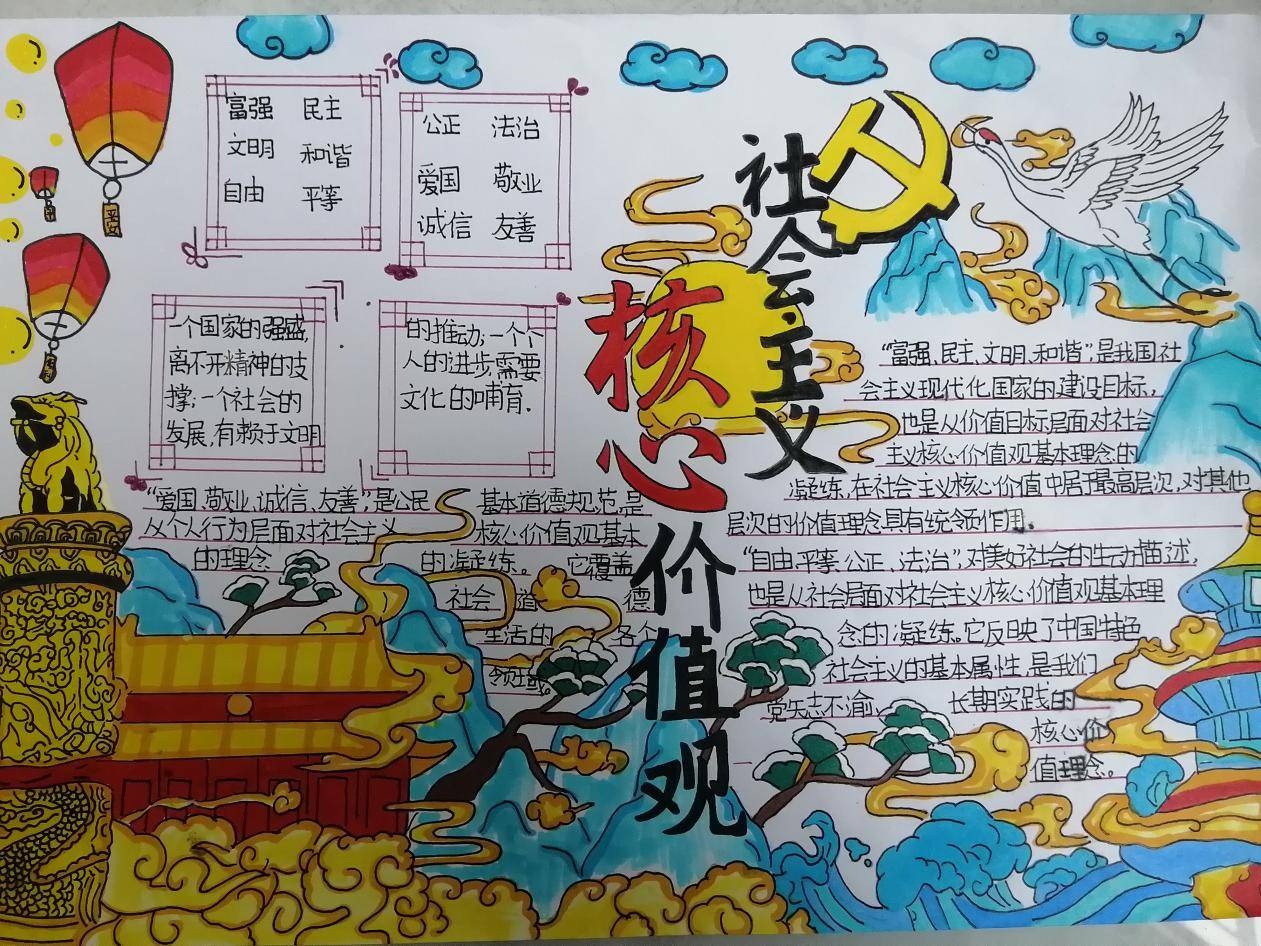 社会主义
核心价值观
平安
富强 民主
文明 和谐
自由 平等
公正 法治
爱国 敬业
诚信 友善
一个国家的强盛,
离不开精神的支
撑;一个社会的
发展,有赖于文明
的推动;一个个
人的进步,需要
文化的哺育.
“爱国、敬业、诚信、友善”,是公民
基本道德规范,是
从个人行为层面对社会主义
核心价值观基本
的理念
的凝练。它覆盖
社会 道 德
生活的 各个
领域。
“富强、民主、文明、和谐”,是我国社
会主义现代化国家的建设目标,
也是从价值目标层面对社会
主义核心价值观基本理念的
凝练,在社会主义核心价值中居于最高层次,对其他
层次的价值理念具有统领作用.
“自由、平等、公正、法治”,对美好社会的生动描述,
也是从社会层面对社会主义核心价值观基本理
念的凝练。它反映了中国特色
社会主义的基本属性,是我们
党矢志不渝、 长期实践的
核心价
值理念。